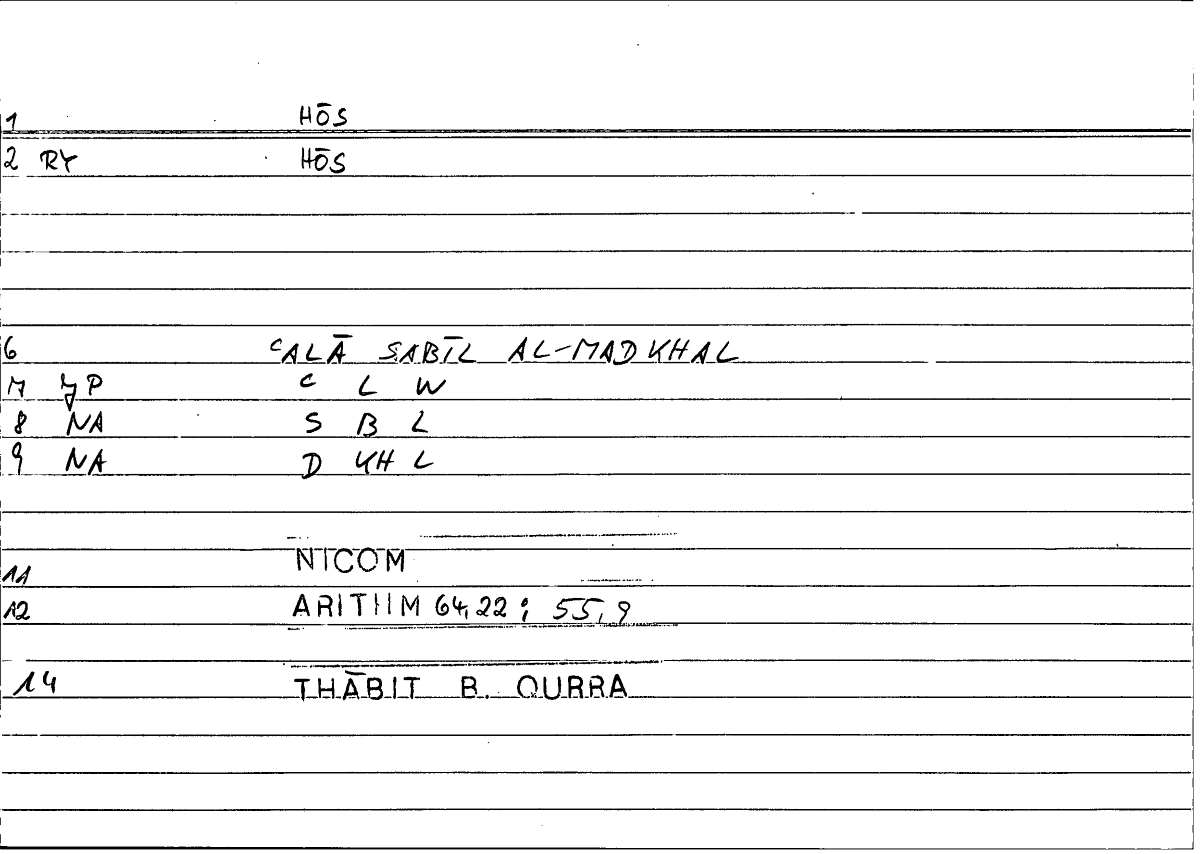 1 HŌS
2 RY HŌS
6 ᶜALĀ SABĪL AL-MADKHAL
7 ZP ᶜ L W
8 NA S B L
9 NA D KH L
11 NICOM
12 ARITHM 64,22; 55,9
14 THĀBIT B. QURRA